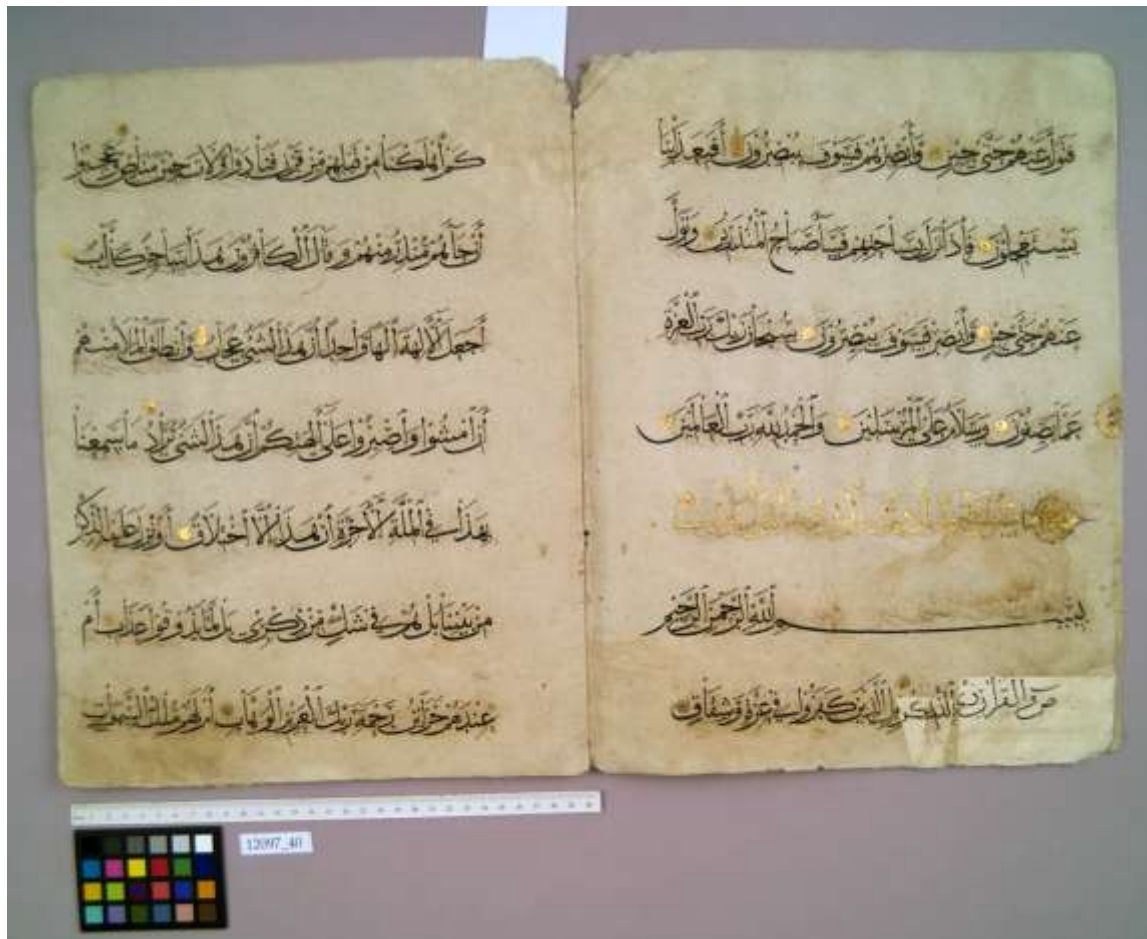 فتول عنهم حتى حين وأبصرهم فسوف يبصرون أفبعذابنا
يستعجلون فإذا نزل بساحتهم فساء صباح المنذرين وتول
عنهم حتى حين وأبصر فسوف يبصرون سبحان ربك رب العزة
عما يصفون وسلام على المرسلين والحمد لله رب العالمين
بسم الله الرحمن الرحيم
ص والقرآن ذي الذكر بل الذين كفروا في عزة وشقاق
كم أهلكنا من قبلهم من قرن فنادوا ولات حين مناص وعجبوا
أن جاءهم منذر منهم وقال الكافرون هذا ساحر كذاب
أجعل الآلهة إلها واحدا إن هذا لشيء عجاب وانطلق الملأ منهم
أن امشوا واصبروا على آلهتكم إن هذا لشيء يراد ما سمعنا
بهذا في الملة الآخرة إن هذا إلا اختلاق أؤنزل عليه الذكر
من بيننا بل هم في شك من ذكري بل لما يذوقوا عذاب أم
عندهم خزائن رحمة ربك العزيز الوهاب أم لهم ملك السموات
12097_40